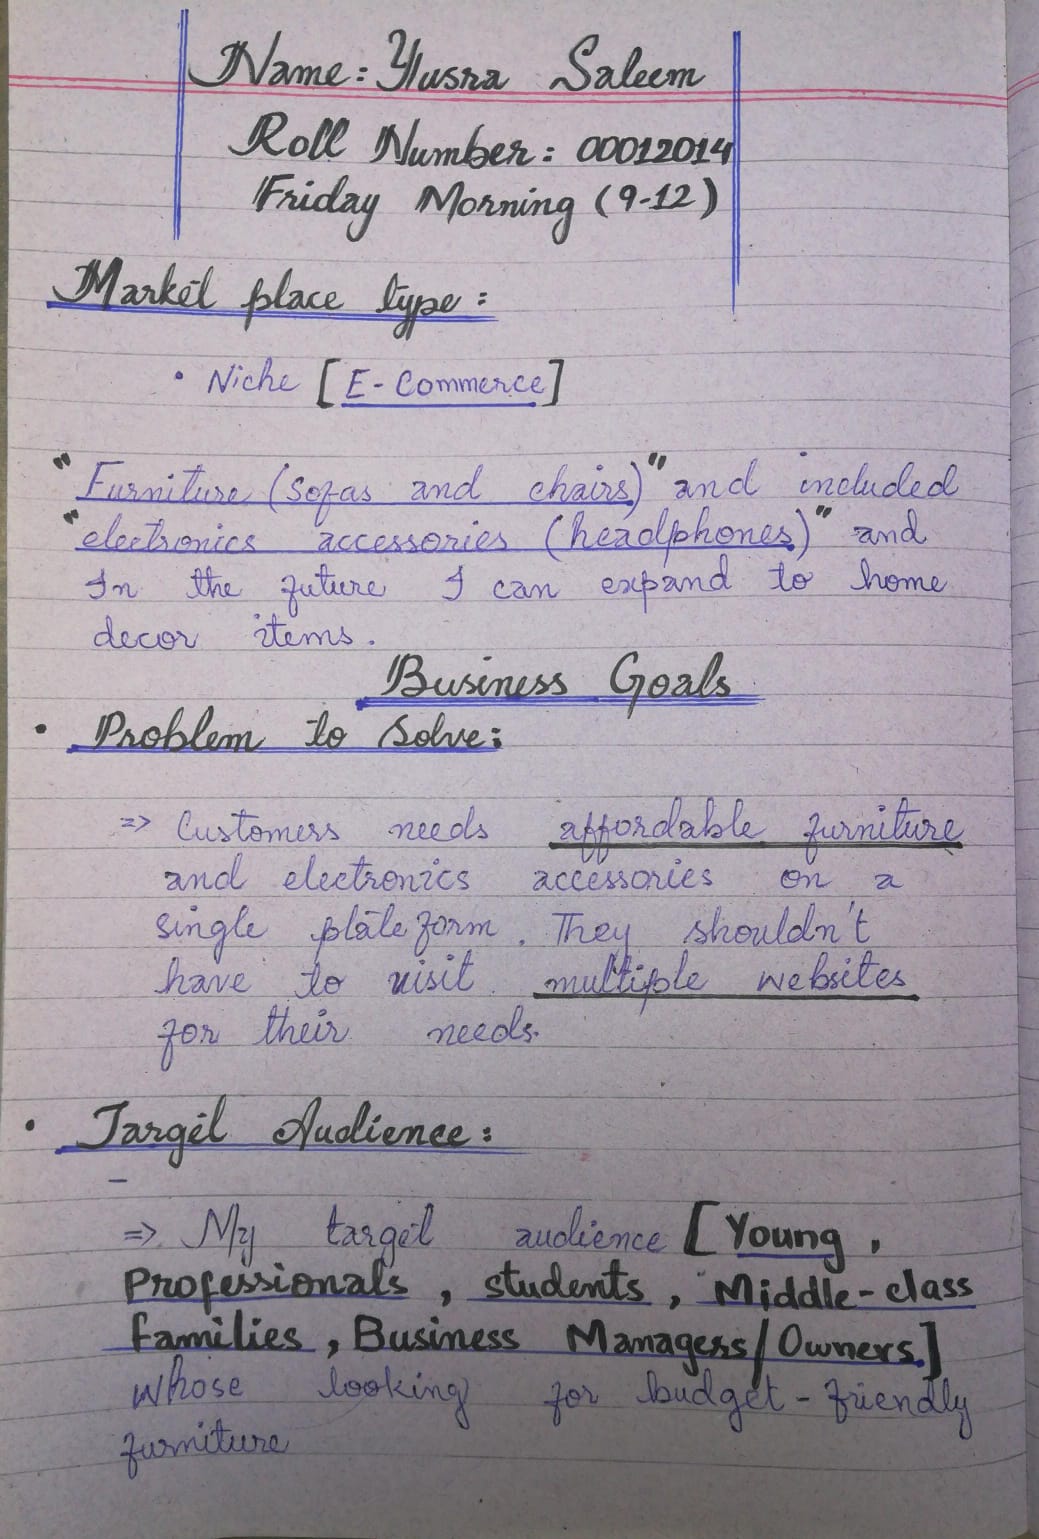 Name: Yusra Saleem
Roll Number: 00012014
Friday Morning (9-12)
Market place type:
• Niche [E-Commerce]
"Furniture (sofas and chairs)" and included
"electronics accessories (headphones)" and
In the future I can expand to home
decor items.
Business Goals
• Problem to Solve:
=> Customers needs affordable furniture
and electronics accessories on a
single plateform. They shouldn't
have to visit multiple websites
for their needs.
• Target Audience:
=> My target audience [Young,
Professionals, students, Middle-class
families, Business Managers/Owners.]
whose looking for budget-friendly
furniture